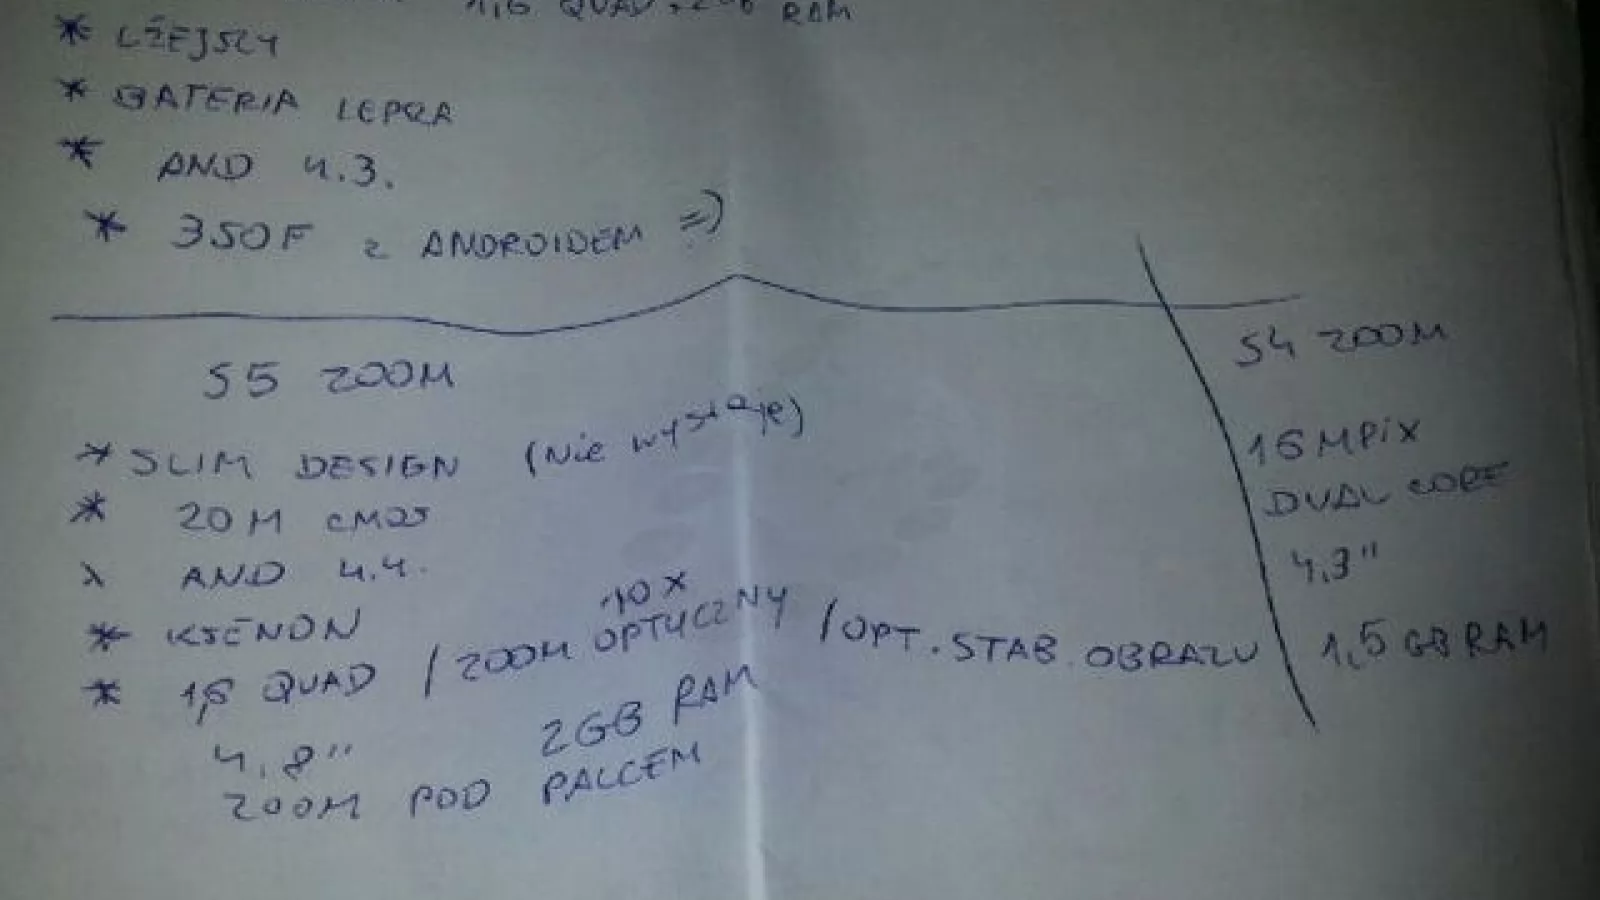 1,6 QUAD + 2GB RAM
* LŻEJSZY
* BATERIA LEPSZA
* AND 4.3.
* 350F z ANDROIDEM =)
S5 ZOOM
* SLIM DESIGN (Nie wystaje)
* 20M CMOS
* AND 4.4.
* KSENON
* 1,6 QUAD / ZOOM OPTYCZNY 10X / OPT. STAB. OBRAZU
4,8"
2GB RAM
ZOOM POD PALCEM
S4 ZOOM
16 MPiX
DUAL CORE
4,3"
1,5 GB RAM